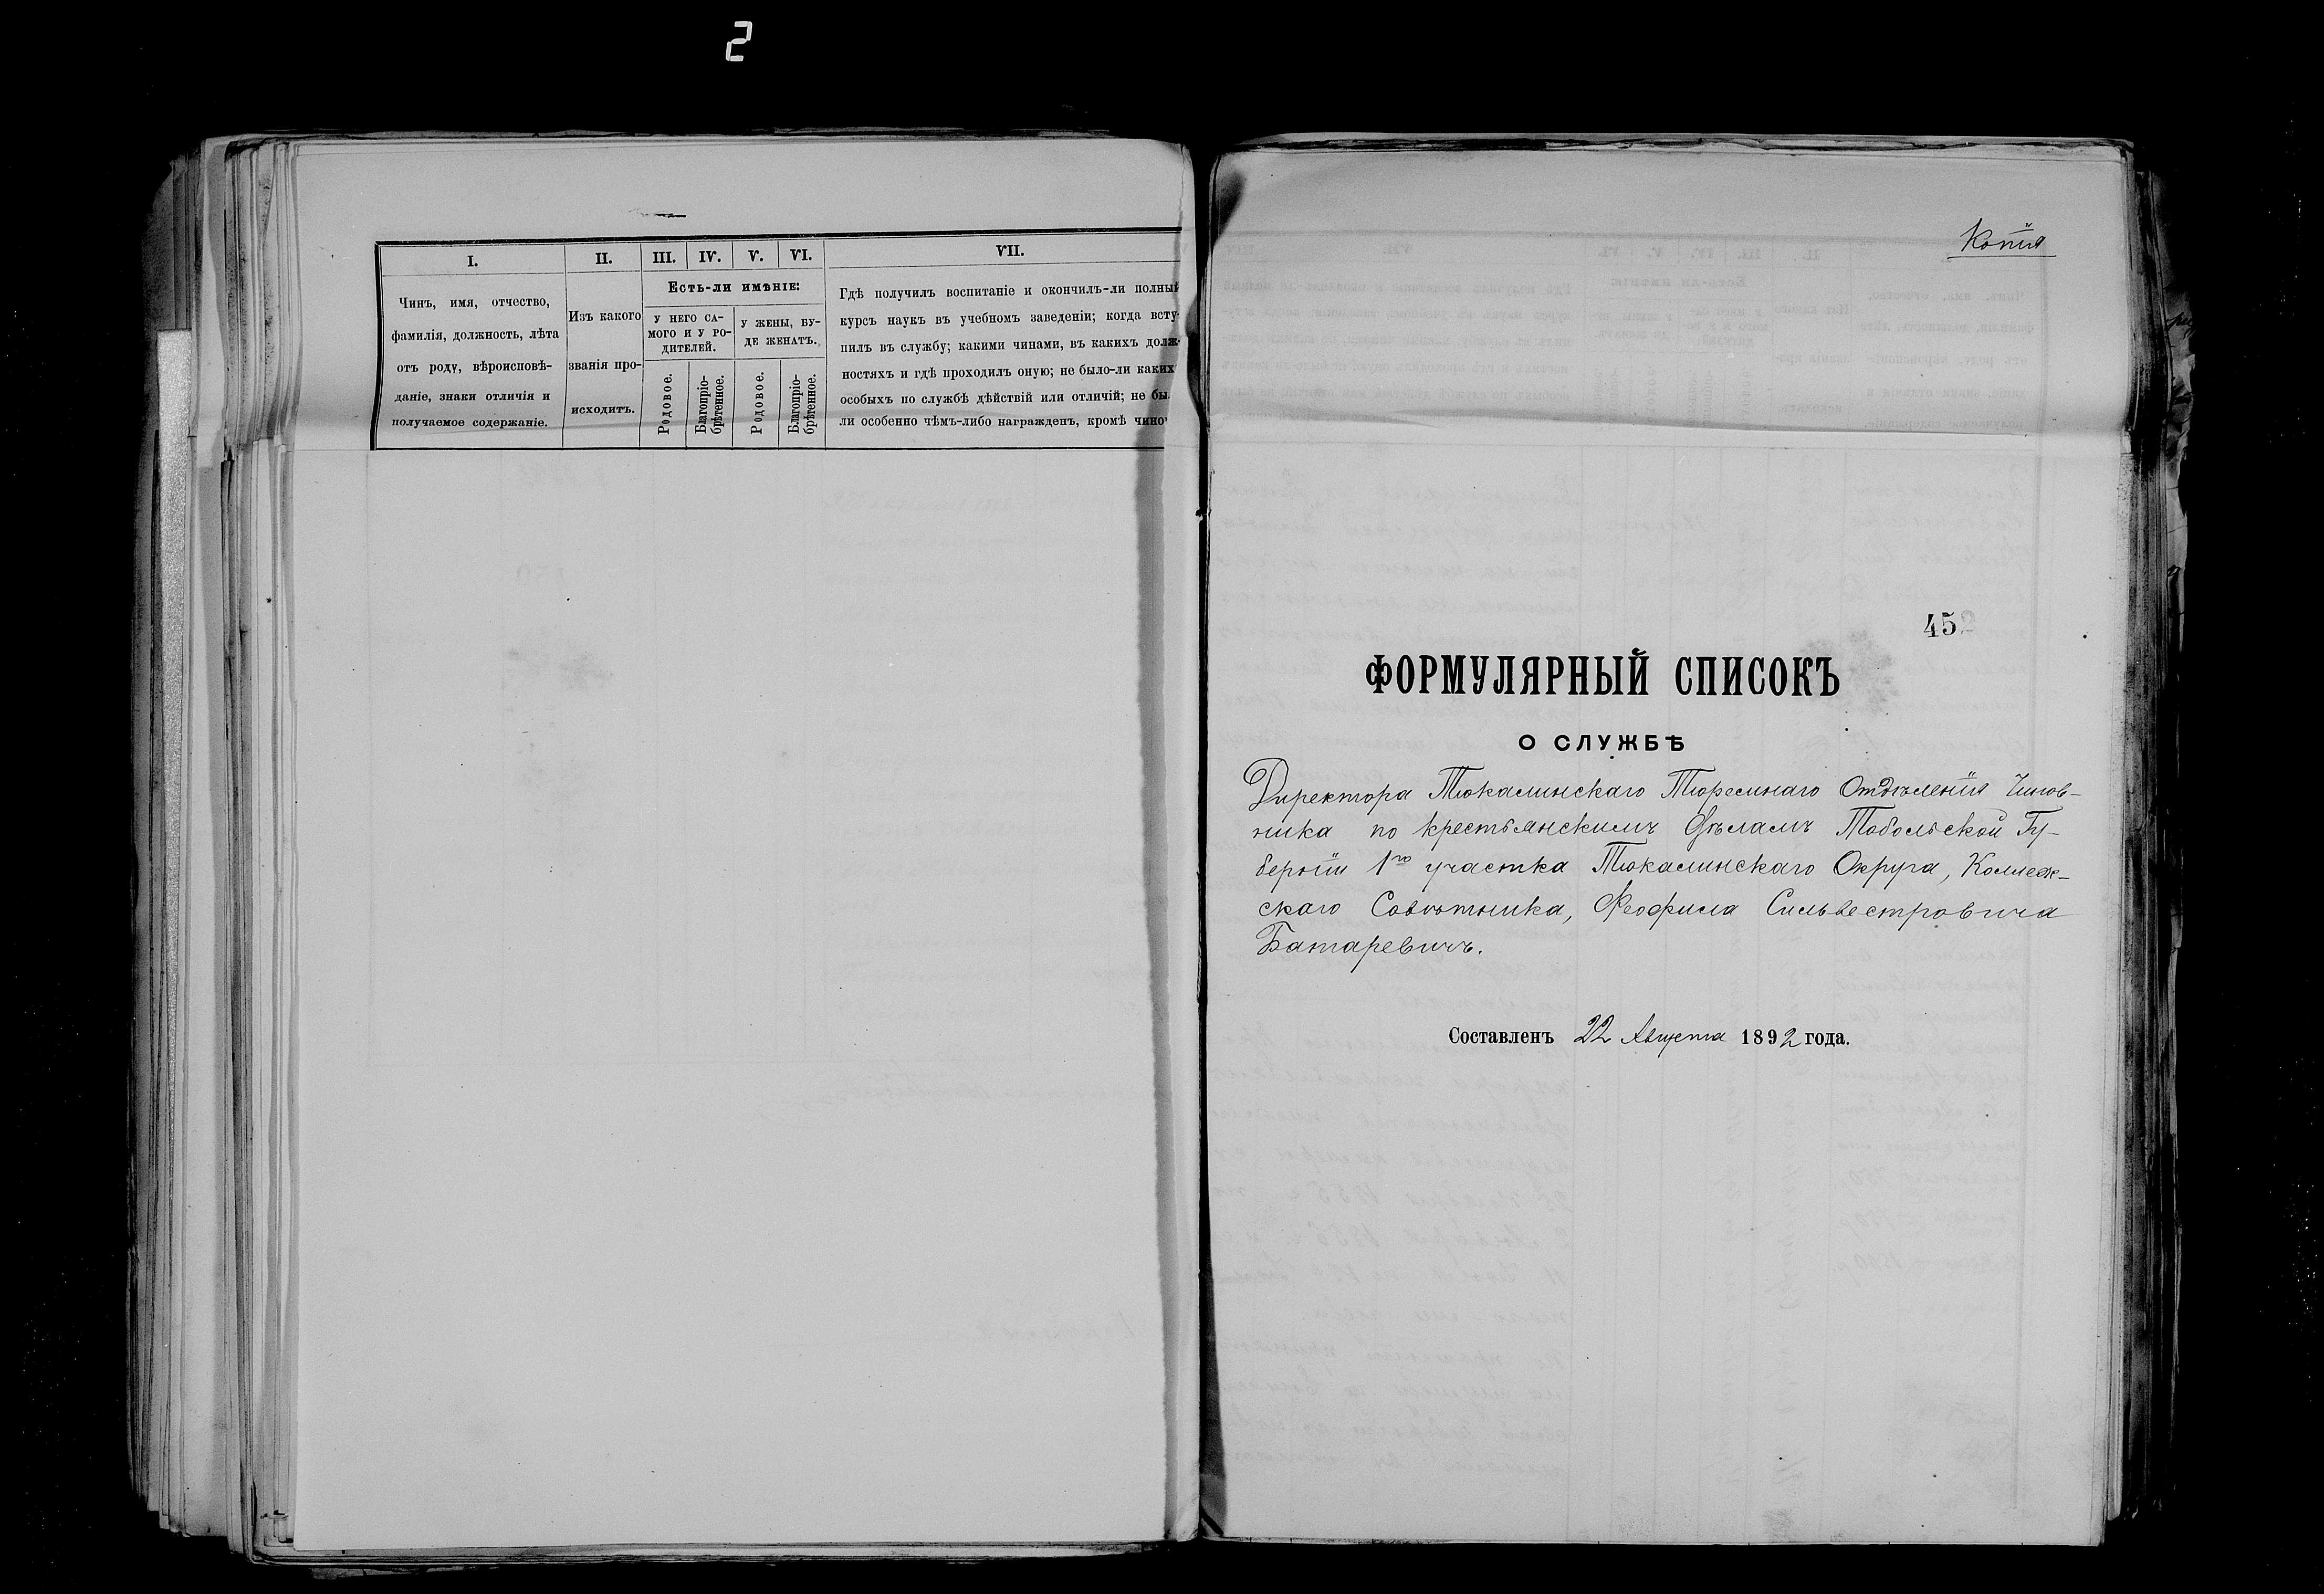 2
I.
II.
III.
IV.
V.
VI.
VII.
Чинъ, имя, отчество,
фамилія, должность, лѣта
отъ роду, вѣроисповѣ-
даніе, знаки отличія и
получаемое содержаніе.
Изъ какого
званія про-
исходитъ.
Есть-ли имѣніе:
У НЕГО СА-
МОГО И У РО-
ДИТЕЛЕЙ.
У ЖЕНЫ, БУ-
ДЕ ЖЕНАТЪ.
Родовое.
Благопріо-
брѣтенное.
Родовое.
Благопріо-
брѣтенное.
Гдѣ получилъ воспитаніе и окончилъ-ли полный
курсъ наукъ въ учебномъ заведеніи; когда всту-
пилъ въ службу; какими чинами, въ какихъ долж-
ностяхъ и гдѣ проходилъ оную; не было-ли каких
особыхъ по службѣ дѣйствій или отличій; не бы
ли особенно чѣмъ-либо награжденъ, кромѣ чино
Копія
452
ФОРМУЛЯРНЫЙ СПИСОКЪ
О СЛУЖБѢ
Директора Тюкалинскаго Тюремнаго Отдѣленія Чинов-
ника по крестьянскимъ дѣламъ Тобольской Гу-
берніи 1го участка Тюкалинскаго Округа, Коллеж-
скаго Совѣтника, Феофила Сильвестровича
Батаревичъ.
Составленъ 22 Августа 1892 года.